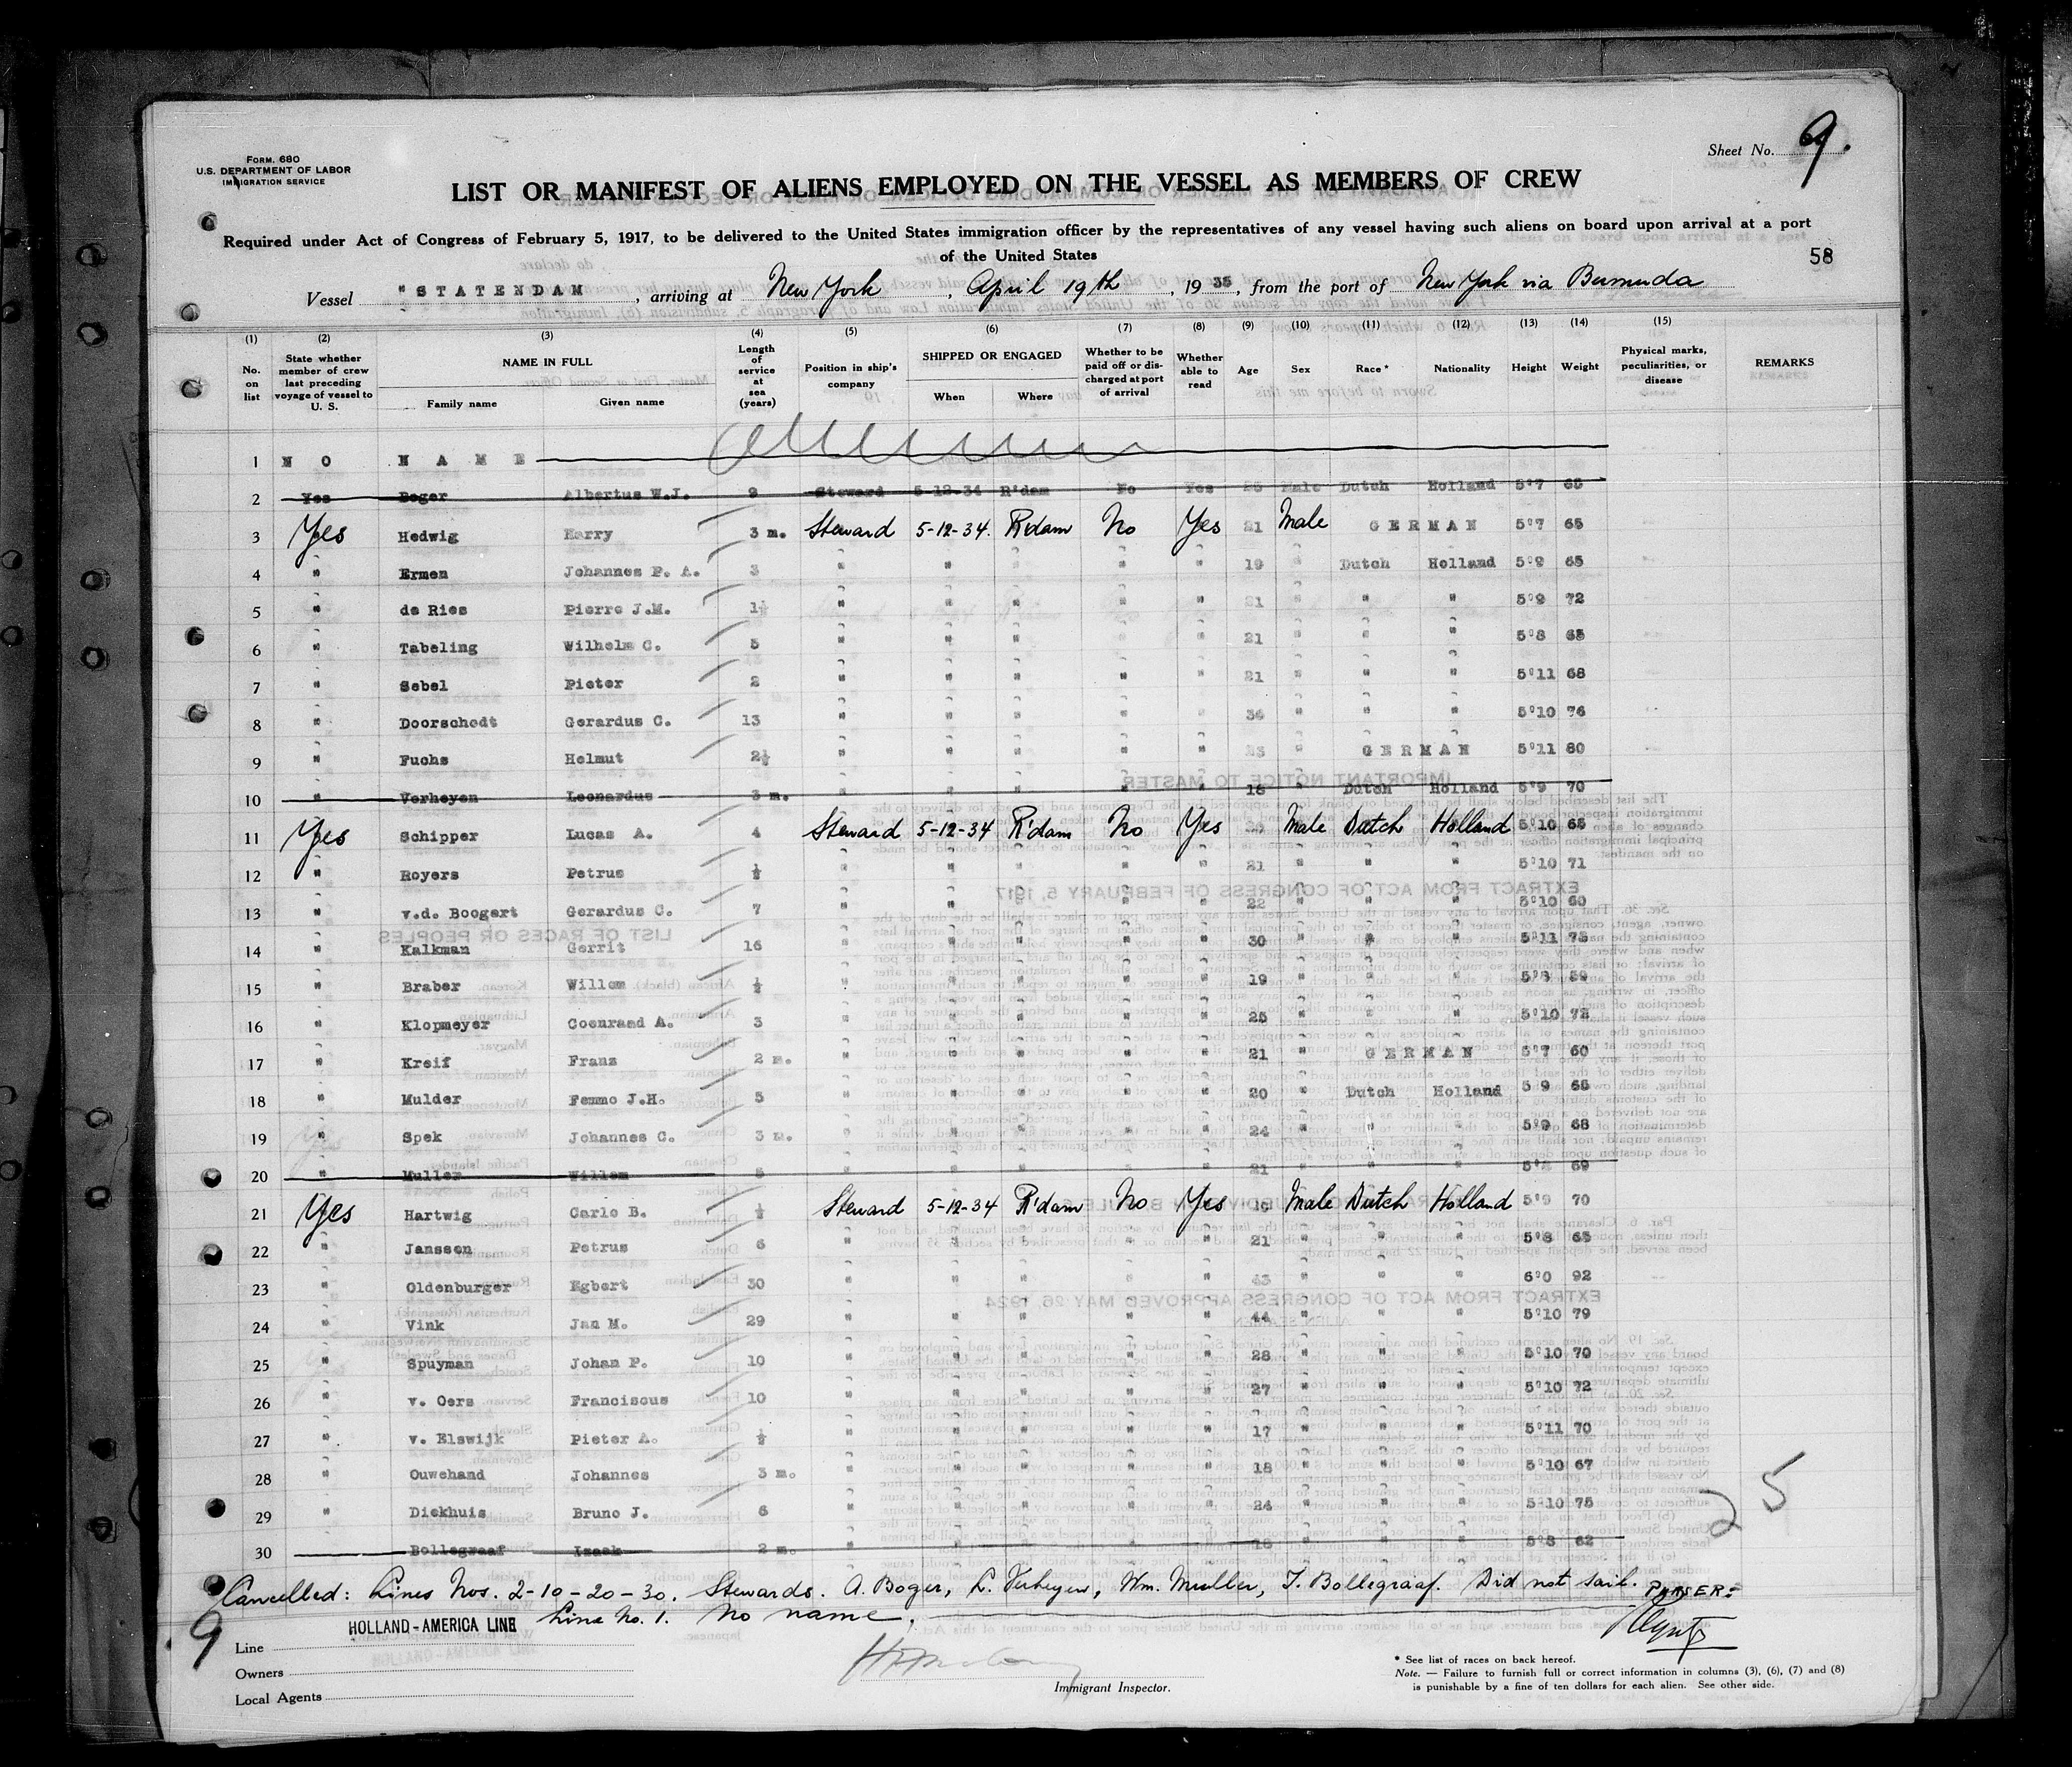 FORM. 680
U.S. DEPARTMENT OF LABOR
IMMIGRATION SERVICE
Sheet No. 9.
LIST OR MANIFEST OF ALIENS EMPLOYED ON THE VESSEL AS MEMBERS OF CREW
Required under Act of Congress of February 5, 1917, to be delivered to the United States immigration officer by the representatives of any vessel having such aliens on board upon arrival at a port
of the United States
58
Vessel "STATENDAM, arriving at New York, April 19th, 1935, from the port of New York via Bermuda
(1) (2) (3) (4) (5) (6) (7) (8) (9) (10) (11) (12) (13) (14) (15)
No. on list | State whether member of crew last preceding voyage of vessel to U. S. | NAME IN FULL Family name Given name | Length of service at sea (years) | Position in ship's company | SHIPPED OR ENGAGED When Where | Whether to be paid off or discharged at port of arrival | Whether able to read | Age | Sex | Race* | Nationality | Height | Weight | Physical marks, peculiarities, or disease | REMARKS
1 NO NAME
2 Yes Boger Albertus W.J. 9 Steward 5-12-34 R'dam No Yes Male Dutch Holland 5'7 65
3 Yes Hedwig Harry 3 m. Steward 5-12-34. R'dam No Yes 21 Male GERMAN 5'7 65
4 " Ermen Johannes P. A. 3 " " " " " 19 " Dutch Holland 5'9 65
5 " de Ries Pierre J.M. 1½ " " " " " 21 " " " 5'9 72
6 " Tabeling Wilhelm C. 5 " " " " " 21 " " " 5'8 65
7 " Sebel Pieter 2 " " " " " 21 " " " 5'11 68
8 " Doorschodt Gerardus C. 13 " " " " " 34 " " " 5'10 76
9 " Fuchs Helmut 2½ " " " " " 23 " GERMAN 5'11 80
10 " Verheyen Leonardus 3 m. " " " " " 18 " Dutch Holland 5'9 70
11 Yes Schipper Lucas A. 4 Steward 5-12-34 R'dam No Yes Male Dutch Holland 5'10 65
12 " Royers Petrus ½ " " " " " 21 " " " 5'10 71
13 " v.d. Boogart Gerardus C. 7 " " " " " 22 " " " 5'10 60
14 " Kalkman Gerrit 16 " " " " " 30 " " " 5'11 75
15 " Braber Willem ½ " " " " " 19 " " " 5'8 59
16 " Klopmeyer Coenraad A. 3 " " " " " 25 " " " 5'10 72
17 " Kreif Franz 2 m. " " " " " 21 " GERMAN 5'7 60
18 " Mulder Femmo J.H. 5 " " " " " 20 " Dutch Holland 5 9 68
19 " Spek Johannes C. 3 m. " " " " " 24 " " " 5'9 68
20 " Muller Willem 5 " " " " " 21 " " " 5'8 69
21 Yes Hartwig Carlo B. ½ Steward 5-12-34 R'dam No Yes 19 Male Dutch Holland 5'9 70
22 " Janssen Petrus 6 " " " " " 21 " " " 5'8 65
23 " Oldenburger Egbert 30 " " " " " 43 " " " 6'0 92
24 " Vink Jan M. 29 " " " " " 44 " " " 5'10 79
25 " Spuyman Johan P. 10 " " " " " 28 " " " 5'10 70
26 " v. Oers Franciscus 10 " " " " " 27 " " " 5'10 72
27 " v. Elswijk Pieter A. ½ " " " " " 17 " " " 5'11 70
28 " Ouwehand Johannes 3 m. " " " " " 18 " " " 5'10 67
29 " Diekhuis Bruno J. 6 " " " " " 24 " " " 5'10 75
30 Bollegraaf Izaak 2 m. " " " " " 18 " " " 5'8 62
25
Cancelled: Lines Nos. 2-10-20-30. Stewards. A. Boger, L. Verheyen, Wm. Muller, I. Bollegraaf. Did not sail. PURSER:
9 Line No. 1. No name.
Line HOLLAND-AMERICA LINE
Owners
Local Agents
Immigrant Inspector.
* See list of races on back hereof.
Note. — Failure to furnish full or correct information in columns (3), (6), (7) and (8)
is punishable by a fine of ten dollars for each alien. See other side.